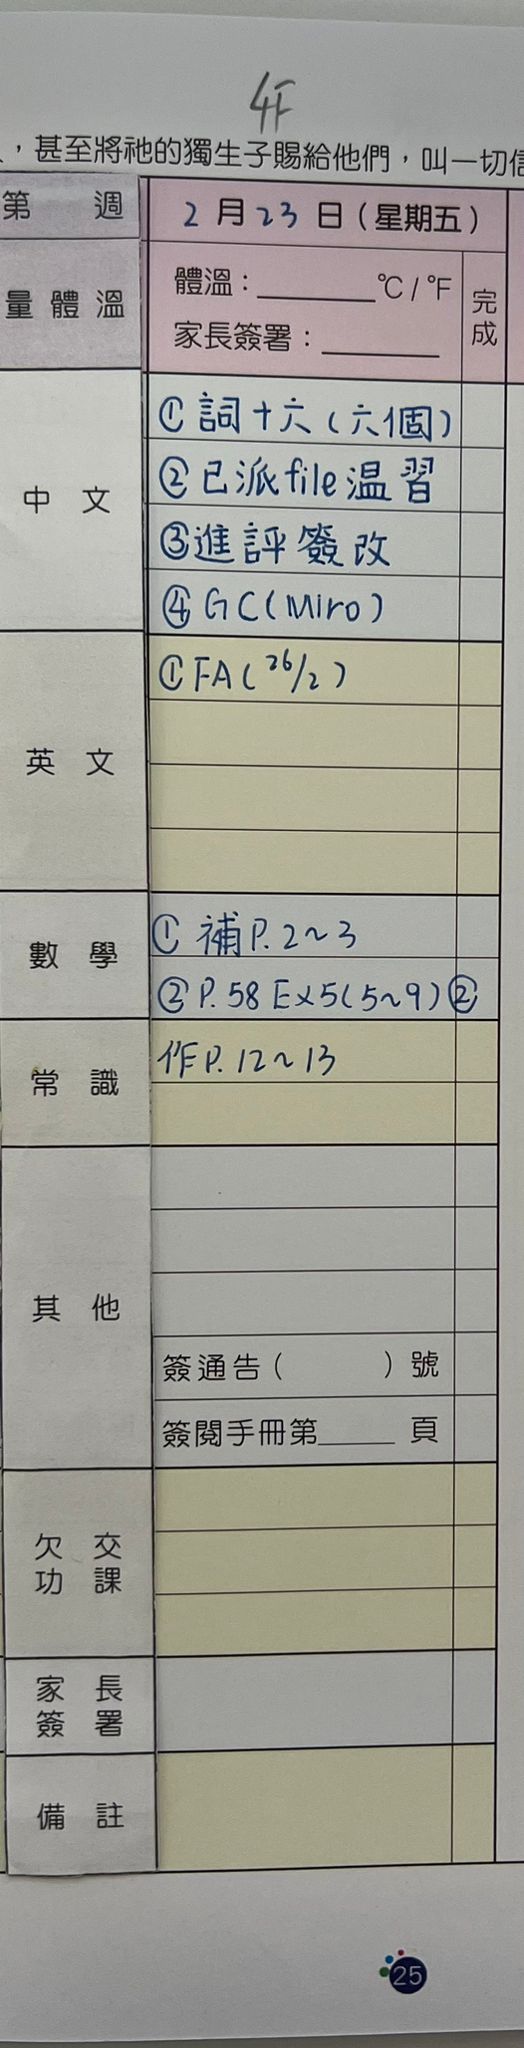 4F
，甚至將祂的獨生子賜給他們，叫一切信
第 週 2月23日(星期五)
量體溫 體溫：______°C / °F 完成
家長簽署：______
中文 ①詞十六(六個)
②已派file温習
③進評簽改
④GC(Miro)
英文 ①FA(26/2)
數學 ①補P.2~3
②P.58 Ex5(5~9)②
常識 作P.12~13
其他
簽通告( )號
簽閱手冊第____頁
欠交功課
家長簽署
備註
25